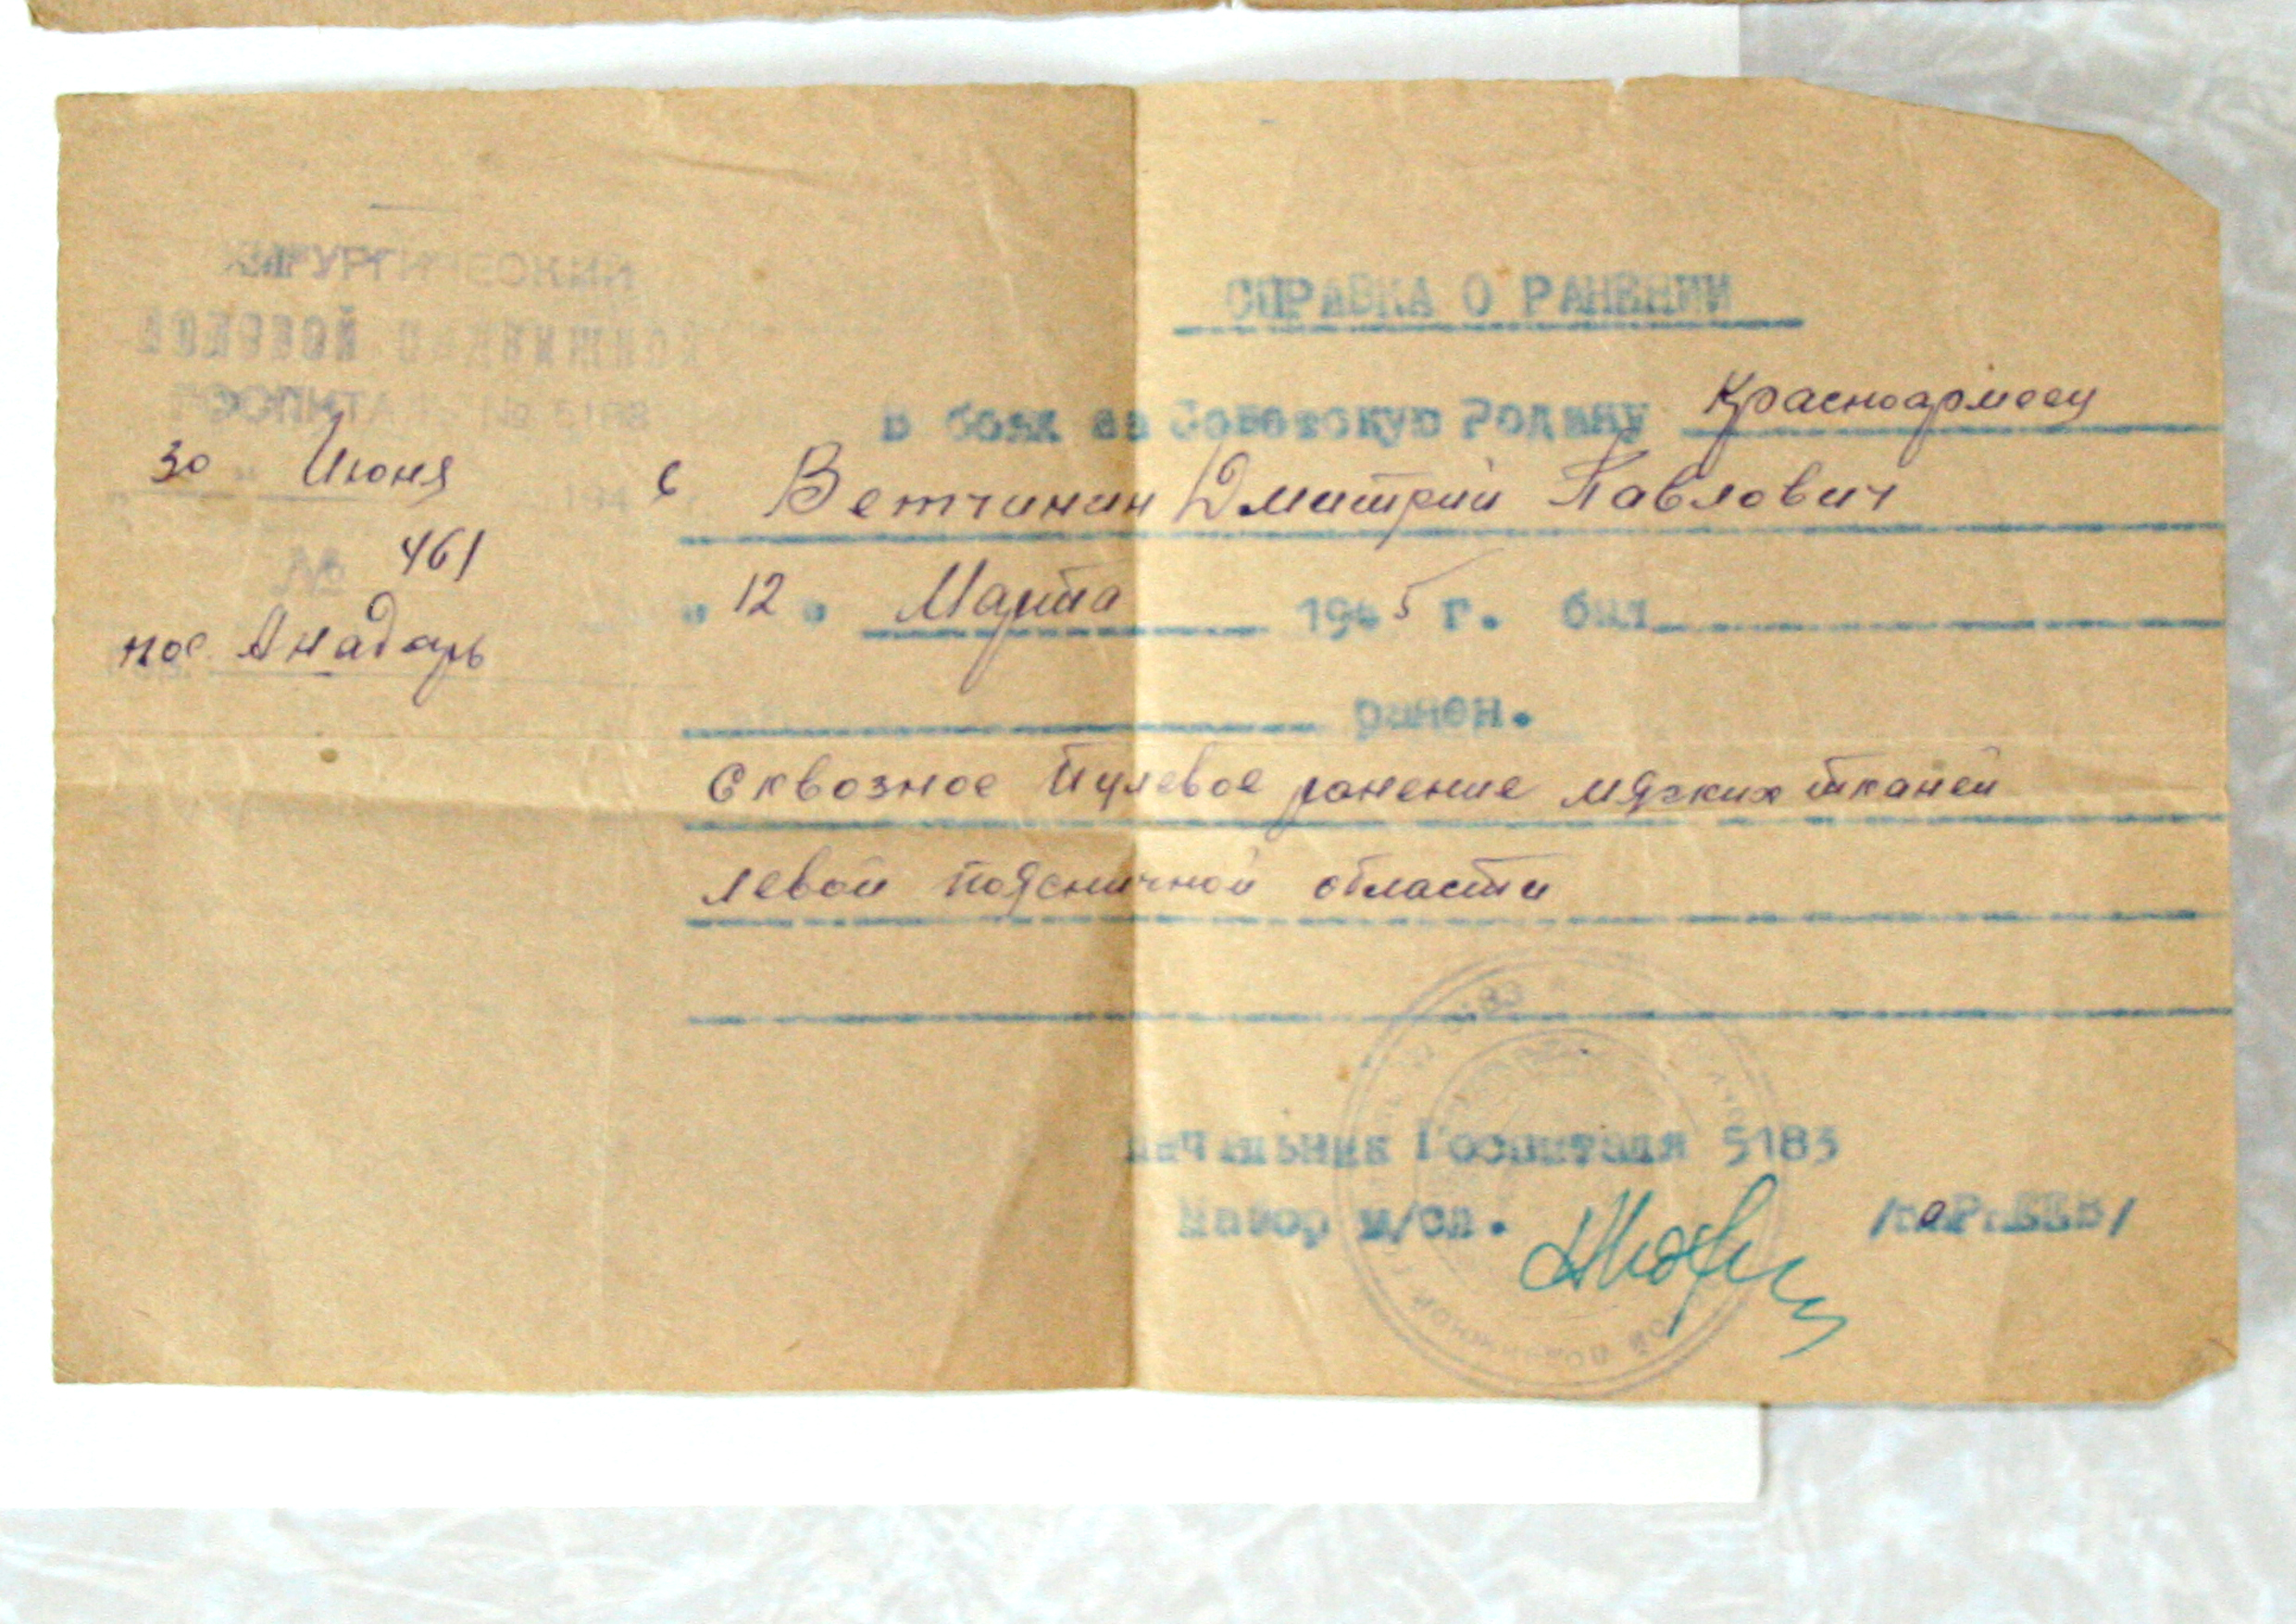 ХИРУРГИЧЕСКИЙ
ПОЛЕВОЙ ПОДВИЖНОЙ
ГОСПИТАЛЬ №
30 Июня 194 6
№ 461
пос. Анадырь
СПРАВКА О РАНЕНИИ
В боях за Советскую Родину Красноармеец
Ветчинин Дмитрий Павлович
"12" Марта 1945 г. был
ранен.
Сквозное Пулевое ранение мягких тканей
левой поясничной области
Начальник Госпиталя 5183
Майор м/сл.